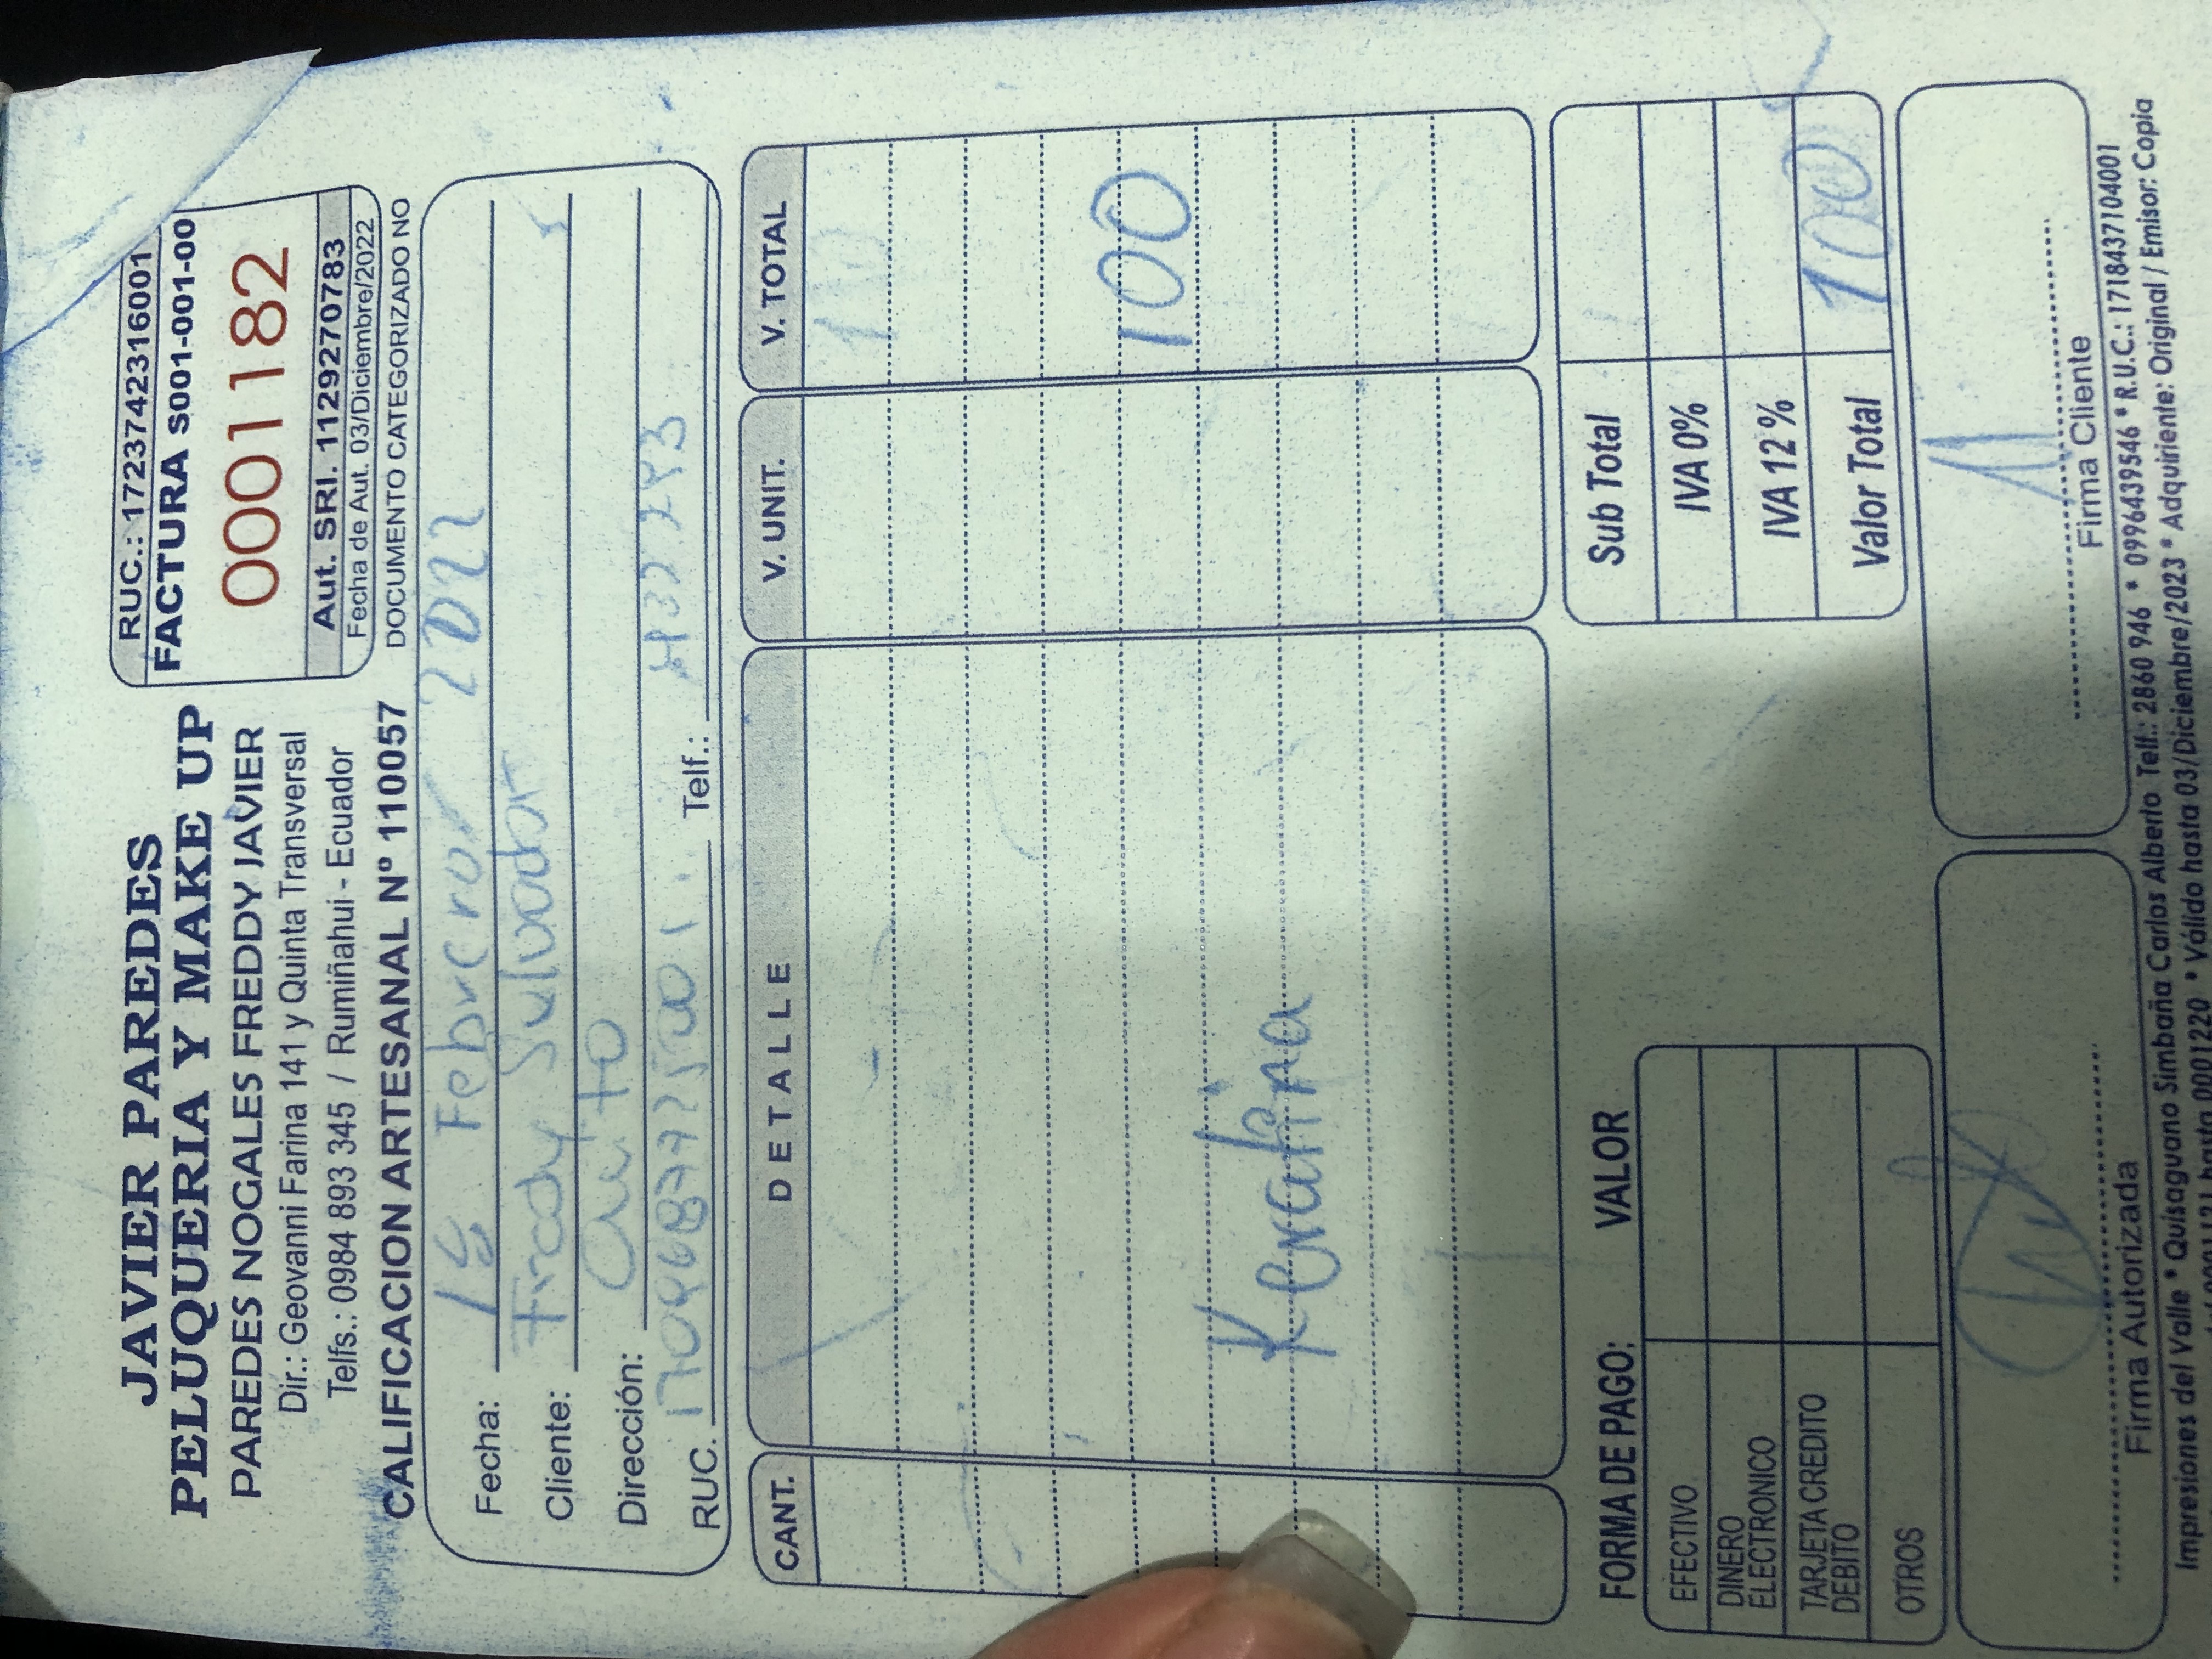 JAVIER PAREDES
PELUQUERIA Y MAKE UP
PAREDES NOGALES FREDDY JAVIER
Dir.: Geovanni Farina 141 y Quinta Transversal
Telfs.: 0984 893 345 / Rumiñahui - Ecuador
CALIFICACION ARTESANAL Nº 110057
RUC.: 1723742316001
FACTURA S001-001-00
0001182
Aut. SRI. 1129270783
Fecha de Aut. 03/Diciembre/2022
DOCUMENTO CATEGORIZADO NO
Fecha: Febrero 2022
Cliente: Fredy Salvador
Dirección: Quito
RUC. Telf.:
CANT. DETALLE V. UNIT. V. TOTAL
100
Keratina
FORMA DE PAGO: VALOR
EFECTIVO
DINERO
ELECTRONICO
TARJETA CREDITO
DEBITO
OTROS
Sub Total
IVA 0%
IVA 12 %
Valor Total 100
Firma Autorizada
Firma Cliente
Impresiones del Valle * Quisaguano Simbaña Carlos Alberto Telf.: 2860 946 * 0996439546 * R.U.C.: 1718437104001
hasta 0001220 * Válido hasta 03/Diciembre/2023 * Adquiriente: Original / Emisor: Copia